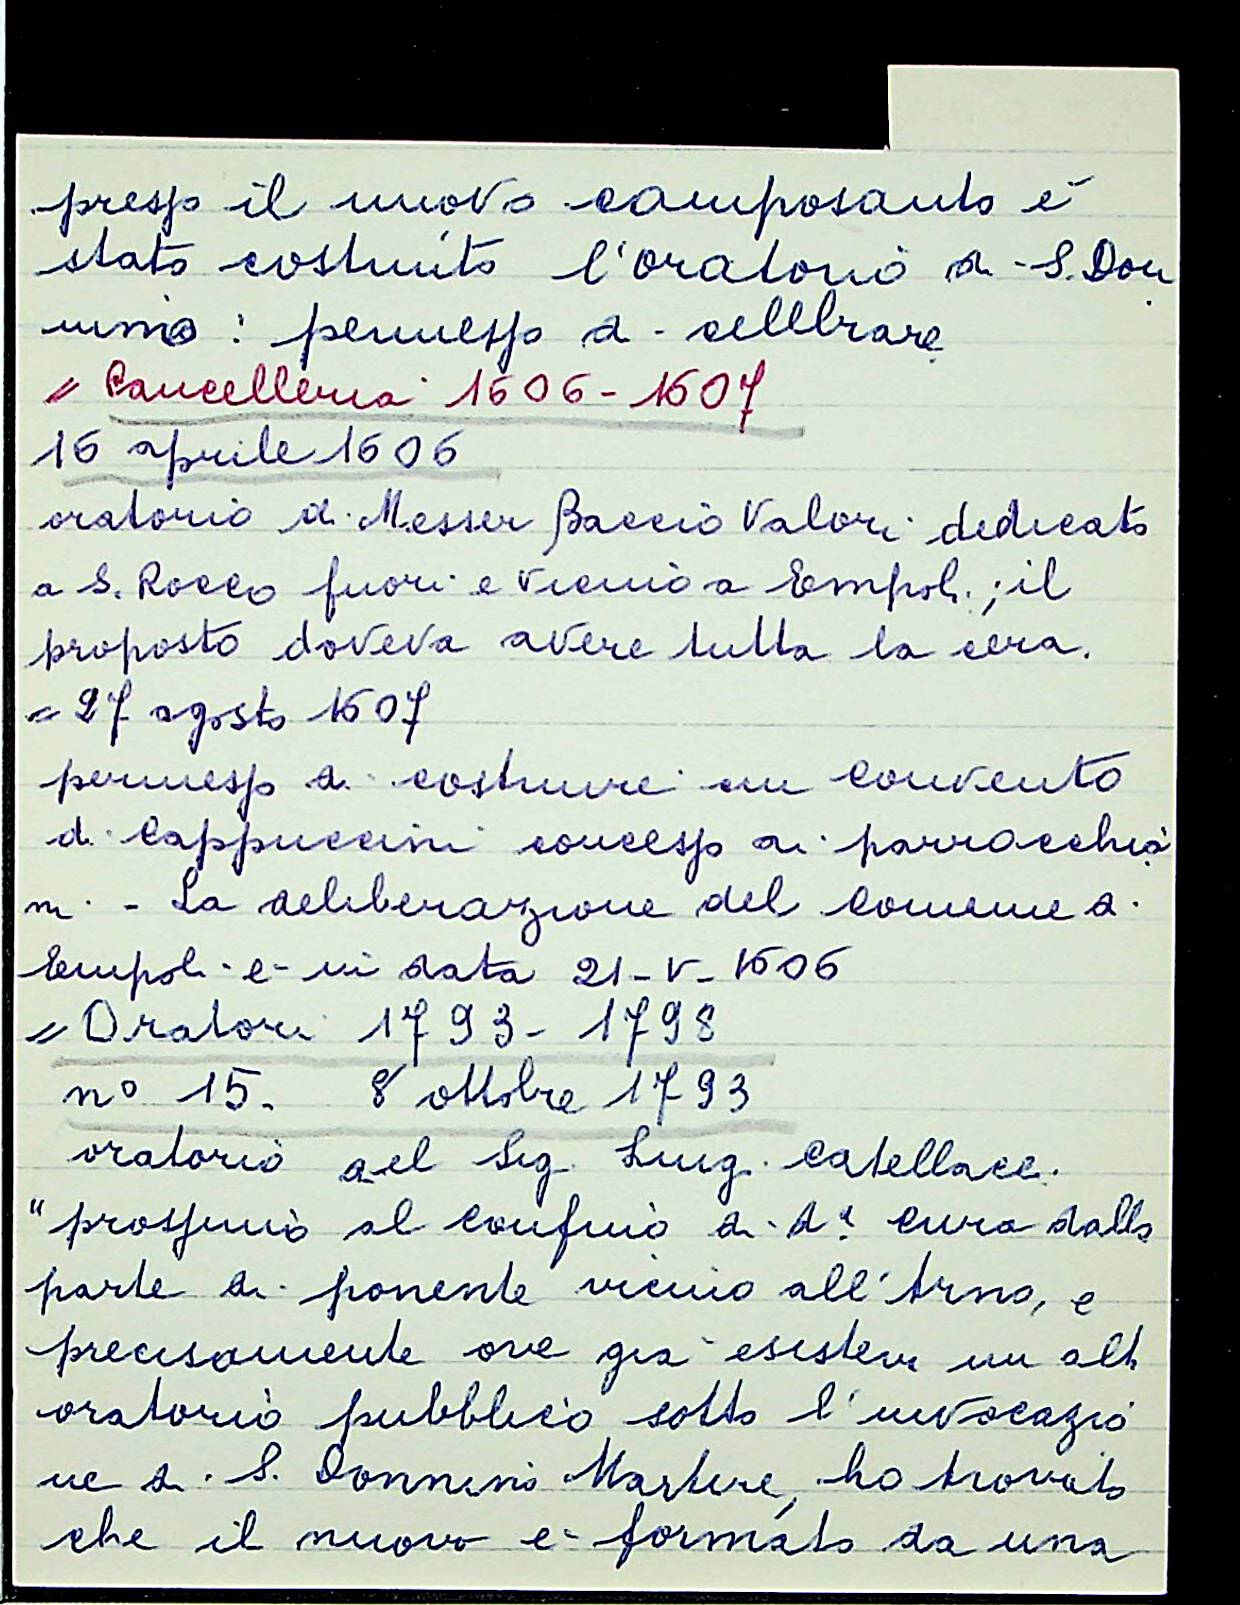 presso il nuovo camposanto è
stato costruito l'oratorio di S. Don
nino : permesso di cellbrare
= Cancelleria 1606-1607
16 aprile 1606
oratorio di Messer Baccio Valori dedicato
a S. Rocco fuori e vicino a Empoli ; il
proposto doveva avere tutta la cera.
= 27 agosto 1607
permesso di costruire un convento
di Cappuccini concesso ai parrocchia
ni. - La deliberazione del Comune di
Empoli è in data 21-V-1606
= Oratori 1793-1798
n° 15. 8 ottobre 1793
oratorio del Sig. Luigi Catellacci.
"prossimo al confine di da cura dalla
parte di ponente vicino all'Arno, e
precisamente ove già esisteva un alt
oratorio pubblico sotto l'invocazio
ne di S. Donnino Martire, ho trovato
che il nuovo è formato da una